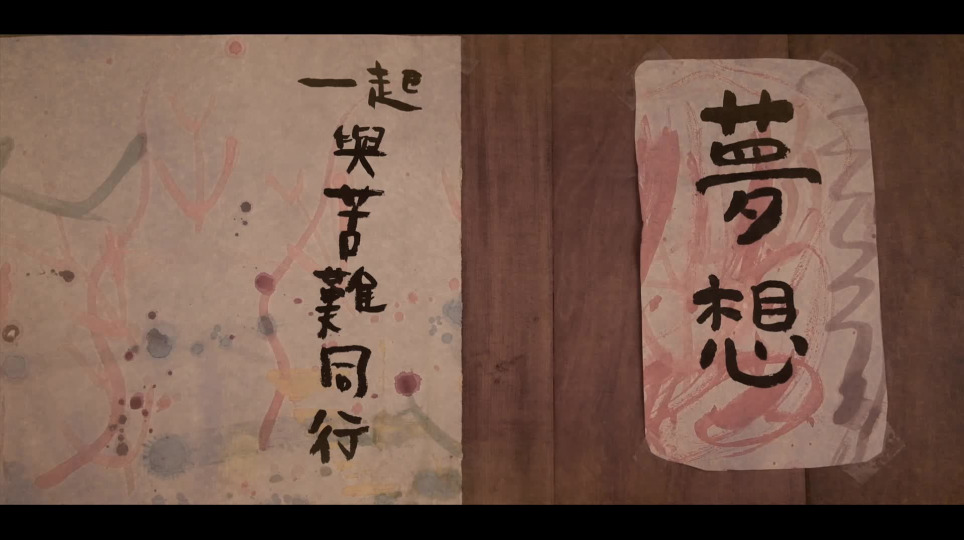 一起
與苦難同行
夢想